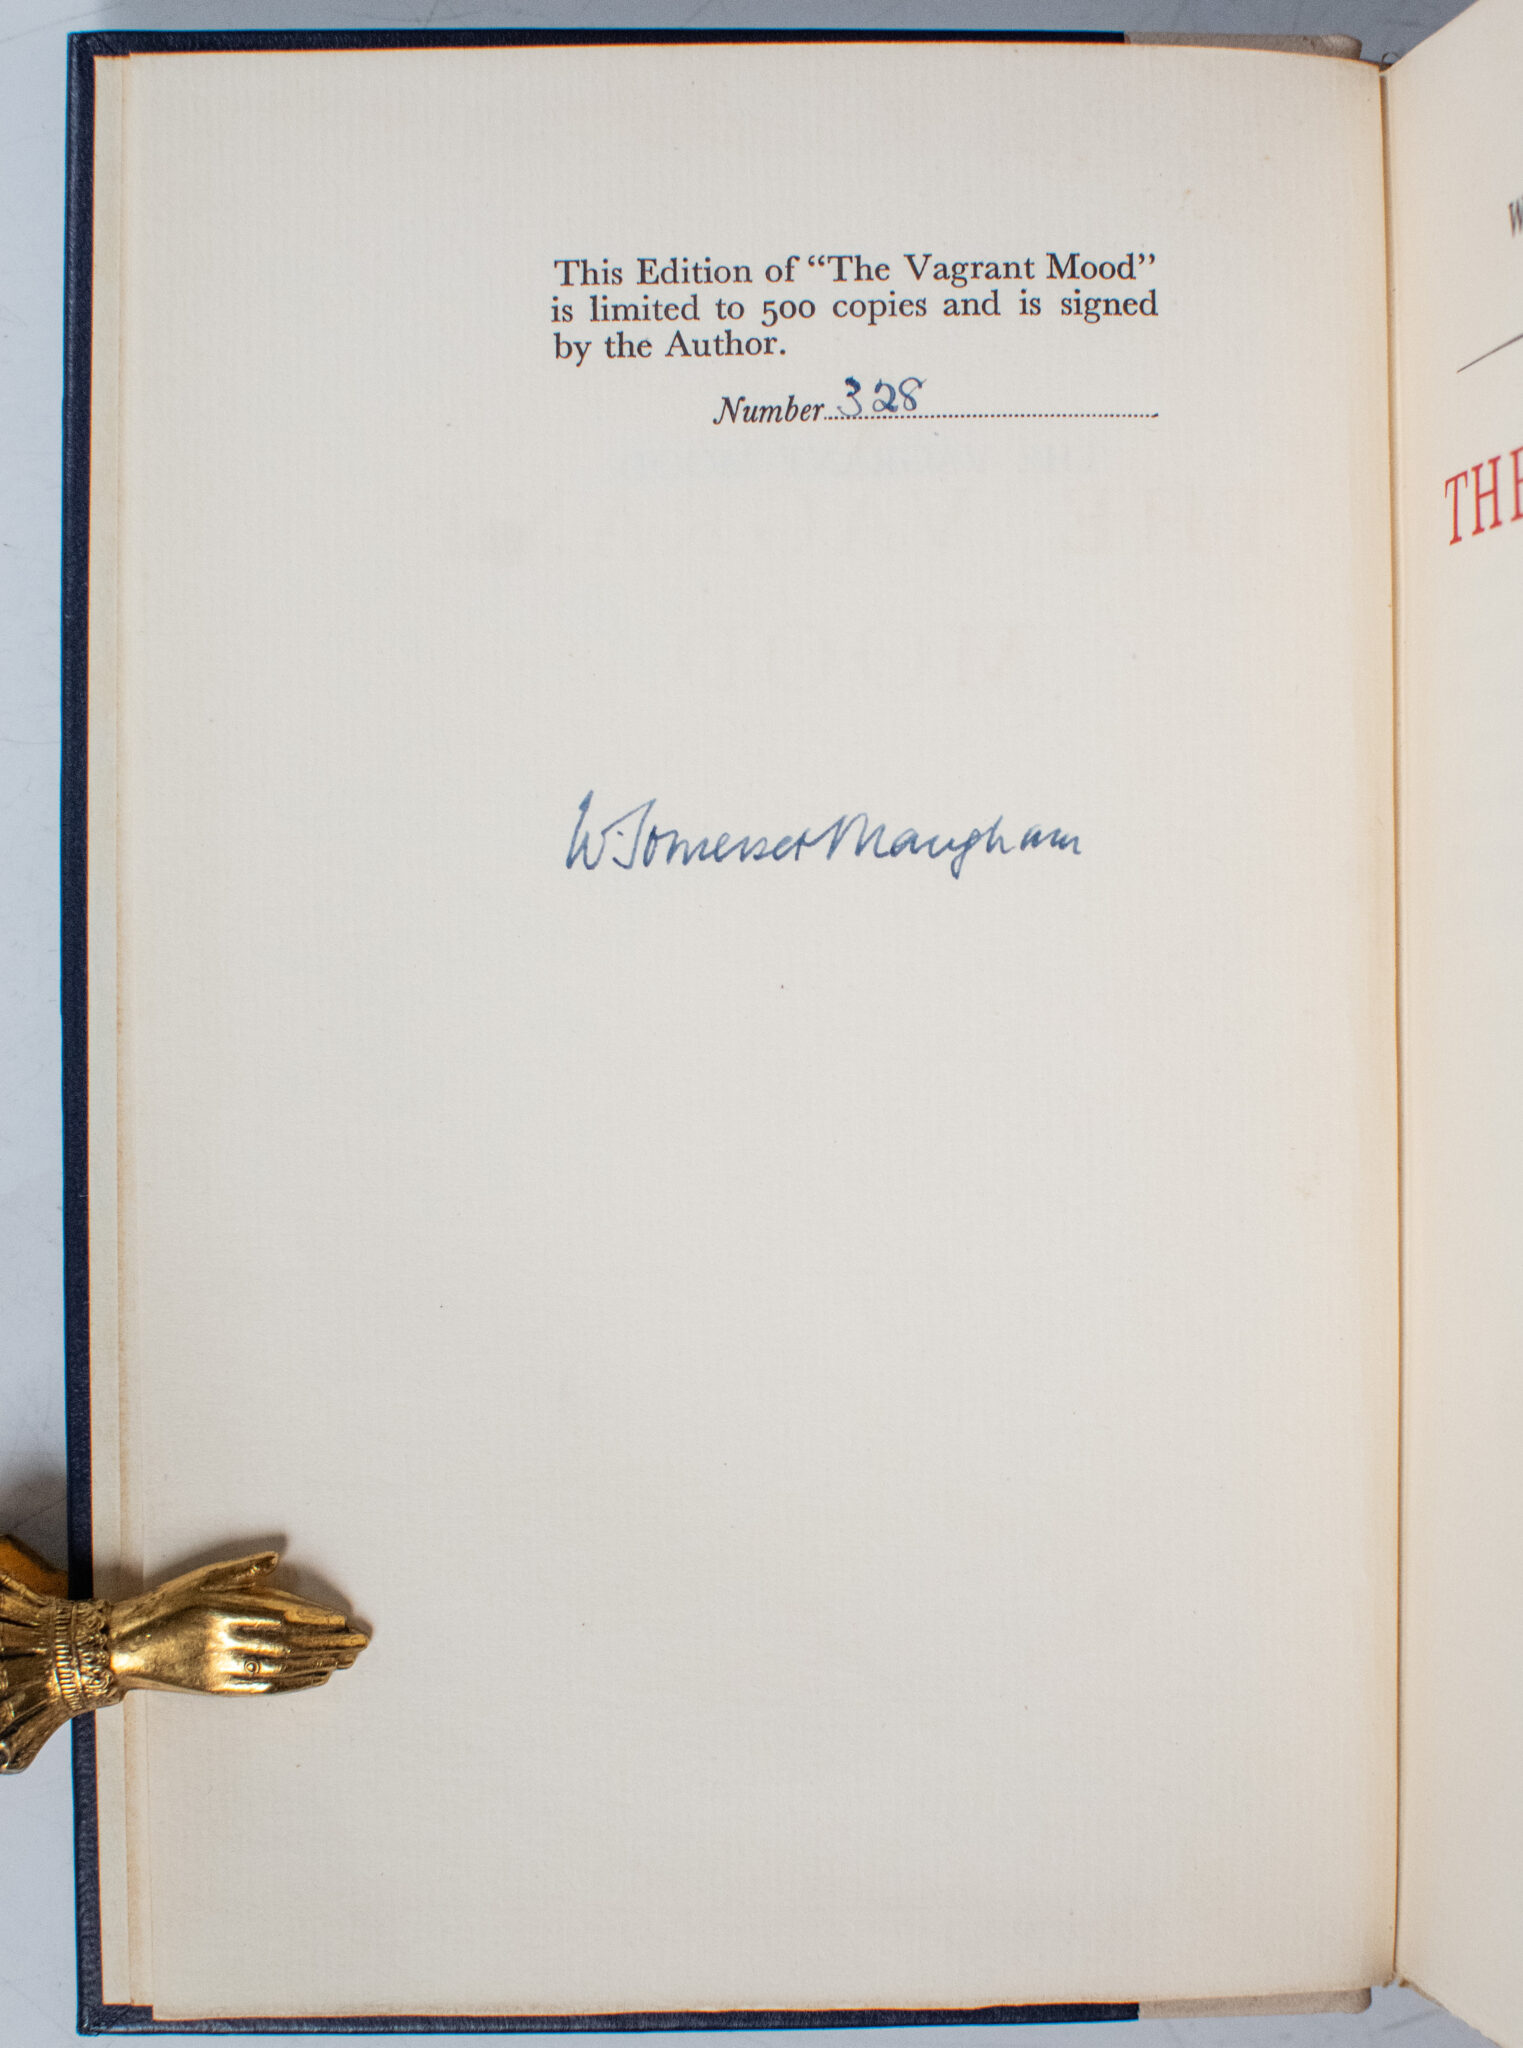 This Edition of “The Vagrant Mood”
is limited to 500 copies and is signed
by the Author.
Number 328
W. Somerset Maugham
W
THE